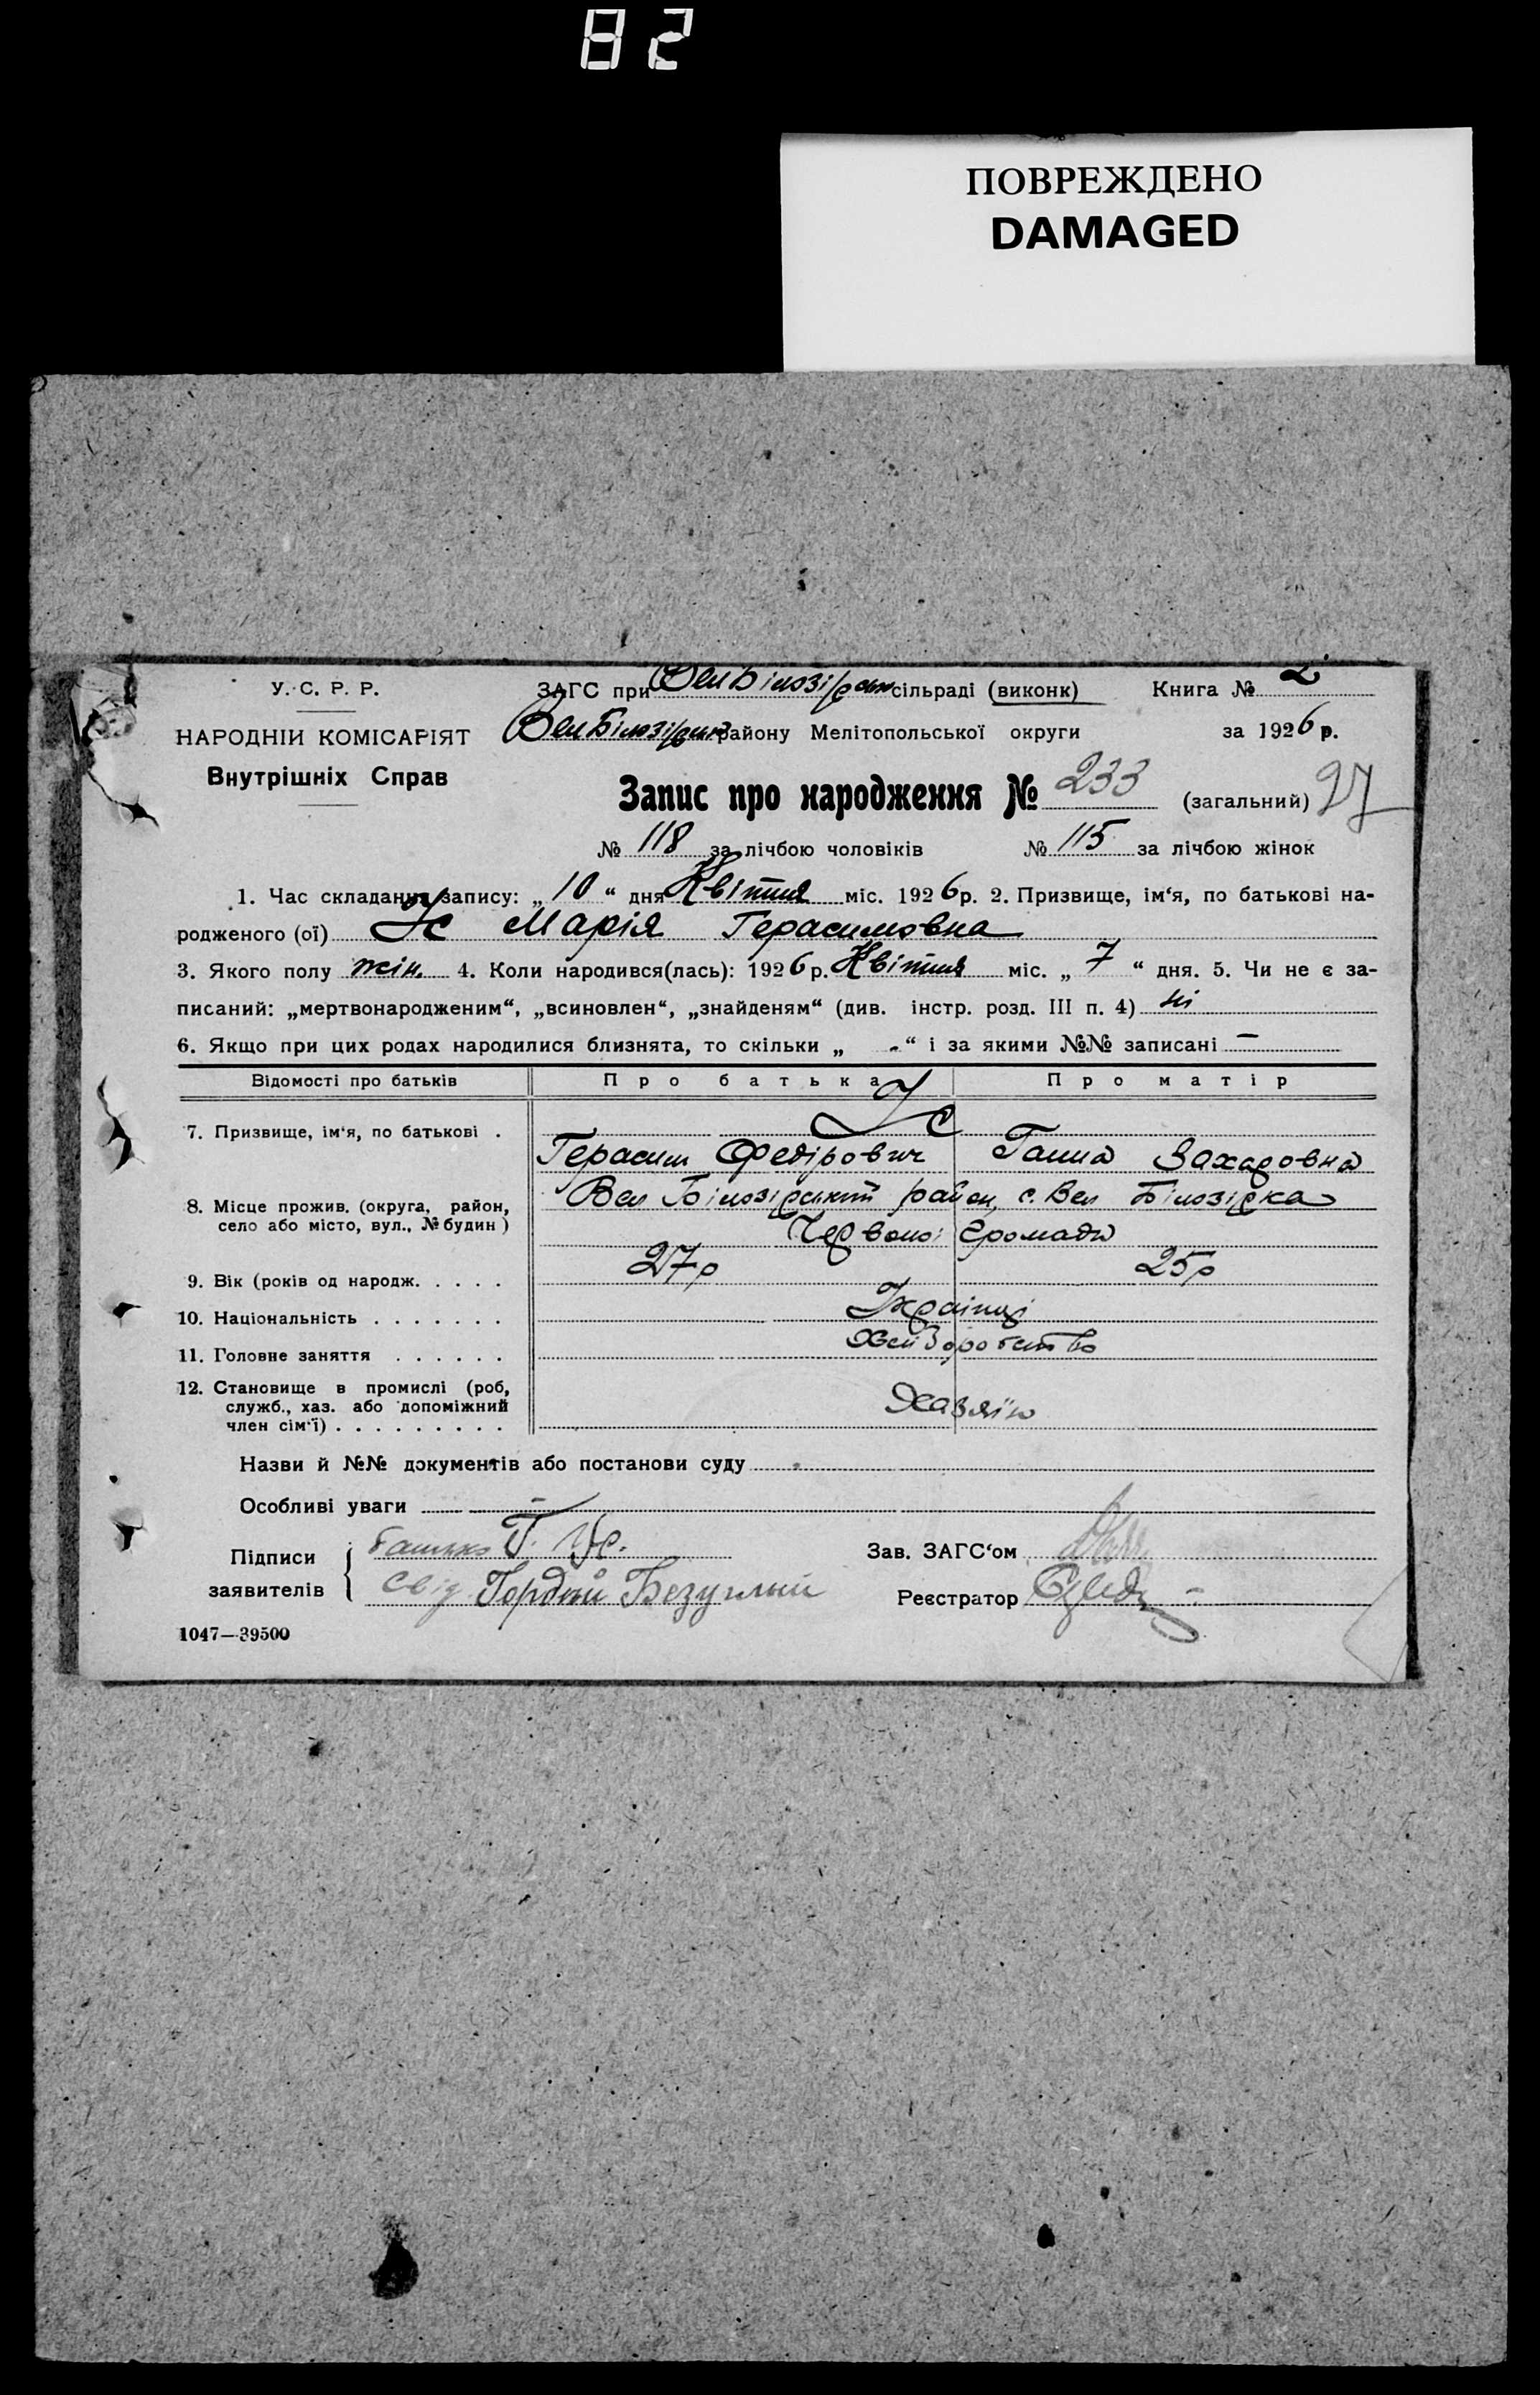 82
ПОВРЕЖДЕНО
DAMAGED
У. С. Р. Р.
ЗАГС при Вел Білозірськ сільраді (виконк) Книга № 2
НАРОДНІЙ КОМІСАРІЯТ
Вел Білозірськ району Мелітопольської округи за 1926 р.
Внутрішніх Справ
Запис про народження № 233 (загальний) 27
№ 118 за лічбою чоловіків № 115 за лічбою жінок
1. Час складання запису: „ 10 “ дня Квітня міс. 1926 р. 2. Призвище, ім‘я, по батькові на-
родженого (ої) Ус Марія Герасимовна
3. Якого полу жін. 4. Коли народився(лась): 1926 р. Квітня міс. „ 7 “ дня. 5. Чи не є за-
писаний: „мертвонародженим“, „всиновлен“, „знайденям“ (див. інстр. розд. III п. 4) ні
6. Якщо при цих родах народилися близнята, то скільки „ - “ і за якими №№ записані —
Відомості про батьків Про батька Про матір
7. Призвище, ім‘я, по батькові . Ус
Герасим Федірович Ганна Захаровна
8. Місце прожив. (округа, район, село або місто, вул., № будин ) Вел Білозірський район, с. Вел Білозірка
Червоної Громади
9. Вік (років од народж. . . . . 27 р 25 р
10. Національність . . . . . . . Українці
11. Головне заняття . . . . . . Хліборобство
12. Становище в промислі (роб,
служб., хаз. або допоміжний
член сім‘ї) . . . . . . . . . Хазяїн
Назви й №№ документів або постанови суду
Особливі уваги —
Підписи заявителів
батько Г. Ус.
Свід Гордій Безуглий
Зав. ЗАГС‘ом
Реєстратор
1047—39500